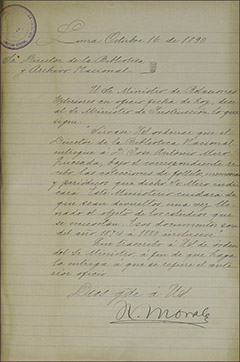 Lima Octubre 16 de 1890
Sr. Director de la Biblioteca
y Archivo Nacional
El Sr. Ministro de Relaciones
Exteriores en oficio fecha de hoy, dice
al Sr. Ministro de Instrucción lo que
sigue:
"Sírvase Ud ordenar que el
Director de la Biblioteca Nacional
entregue á D. Don Antonio Miró
Quesada, bajo el correspondiente
recibo, las colecciones de folletos, memorias
y periódicos que dicho Sr. Miró
Este Ministerio cuidará de
que sean devueltos, una vez lle
nado el objeto de los estudios que
se necesitan. Esos documentos son
del año 1874 á 1882 inclusive"
Que trascribo á Ud de orden
del Sr Ministro, á fin de que haga
la entrega á que se refiere el ante
rior oficio.
Dios gde á Ud
Morales